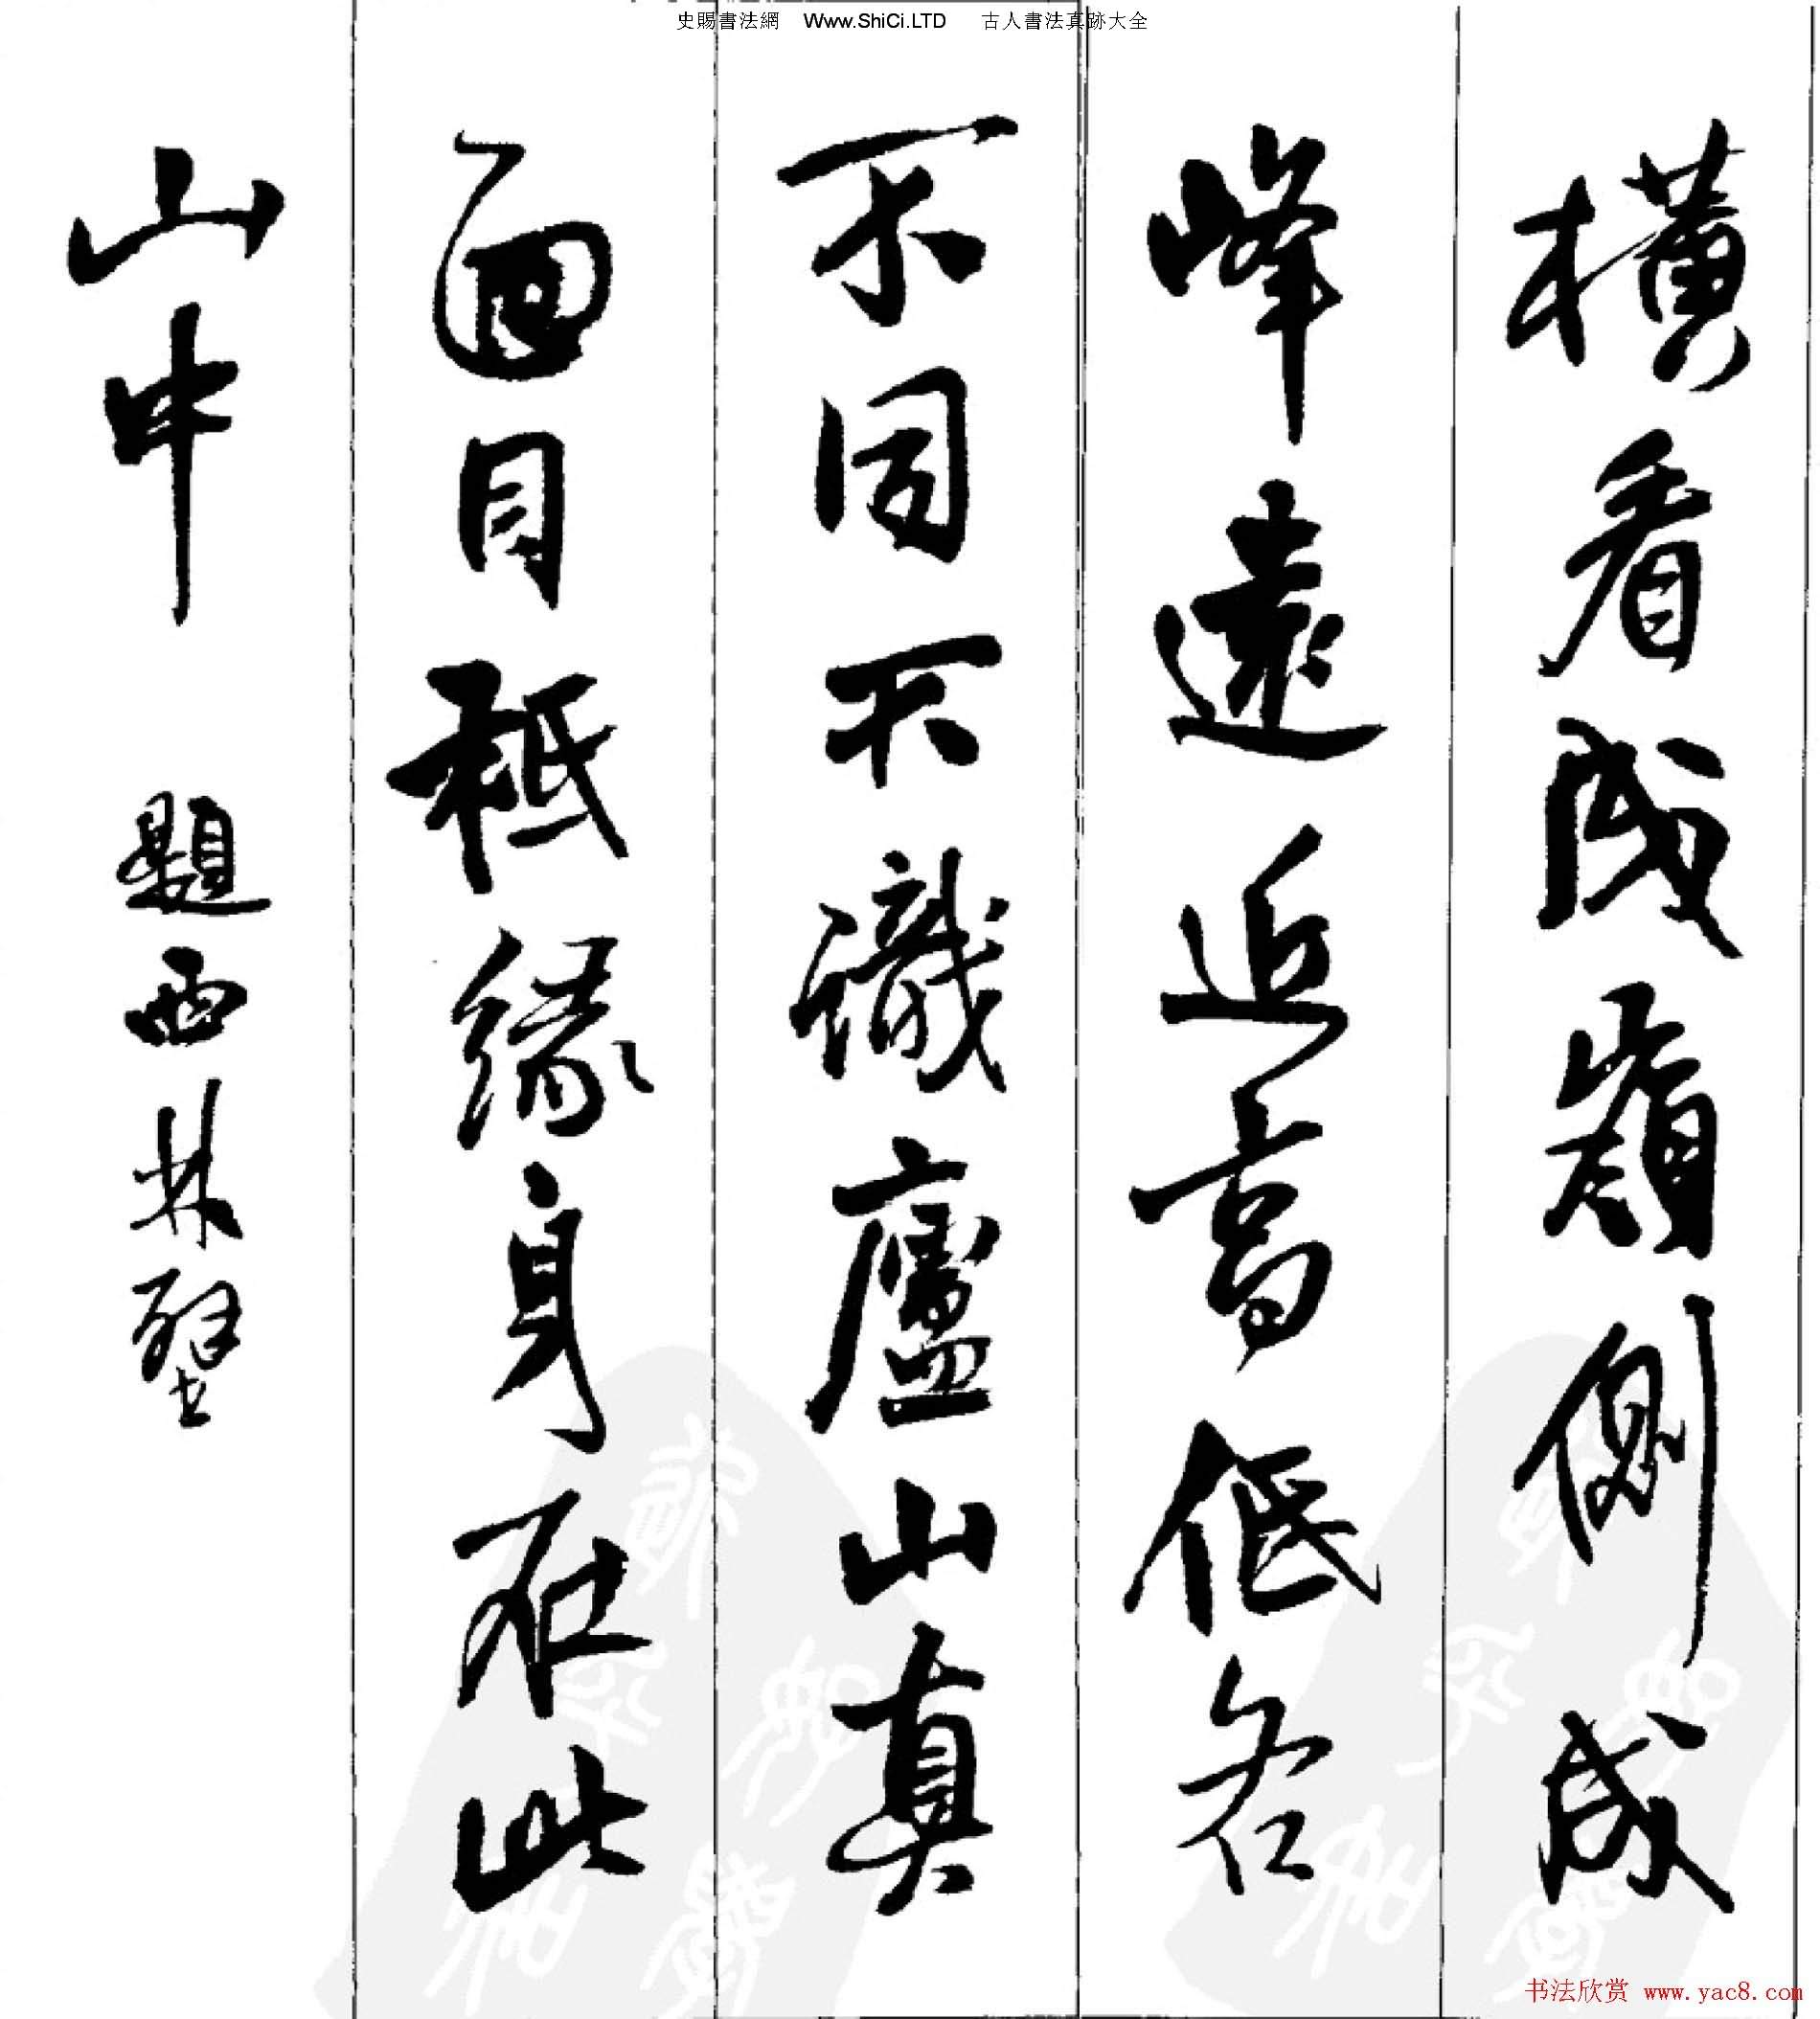 史賜書法網 Www.ShiCi.LTD 古人書法真跡大全
橫看成嶺側成
峰遠近高低各
不同不識廬山真
面目秪緣身在此
山中 題西林壁
书法欣赏 www.yac8.com